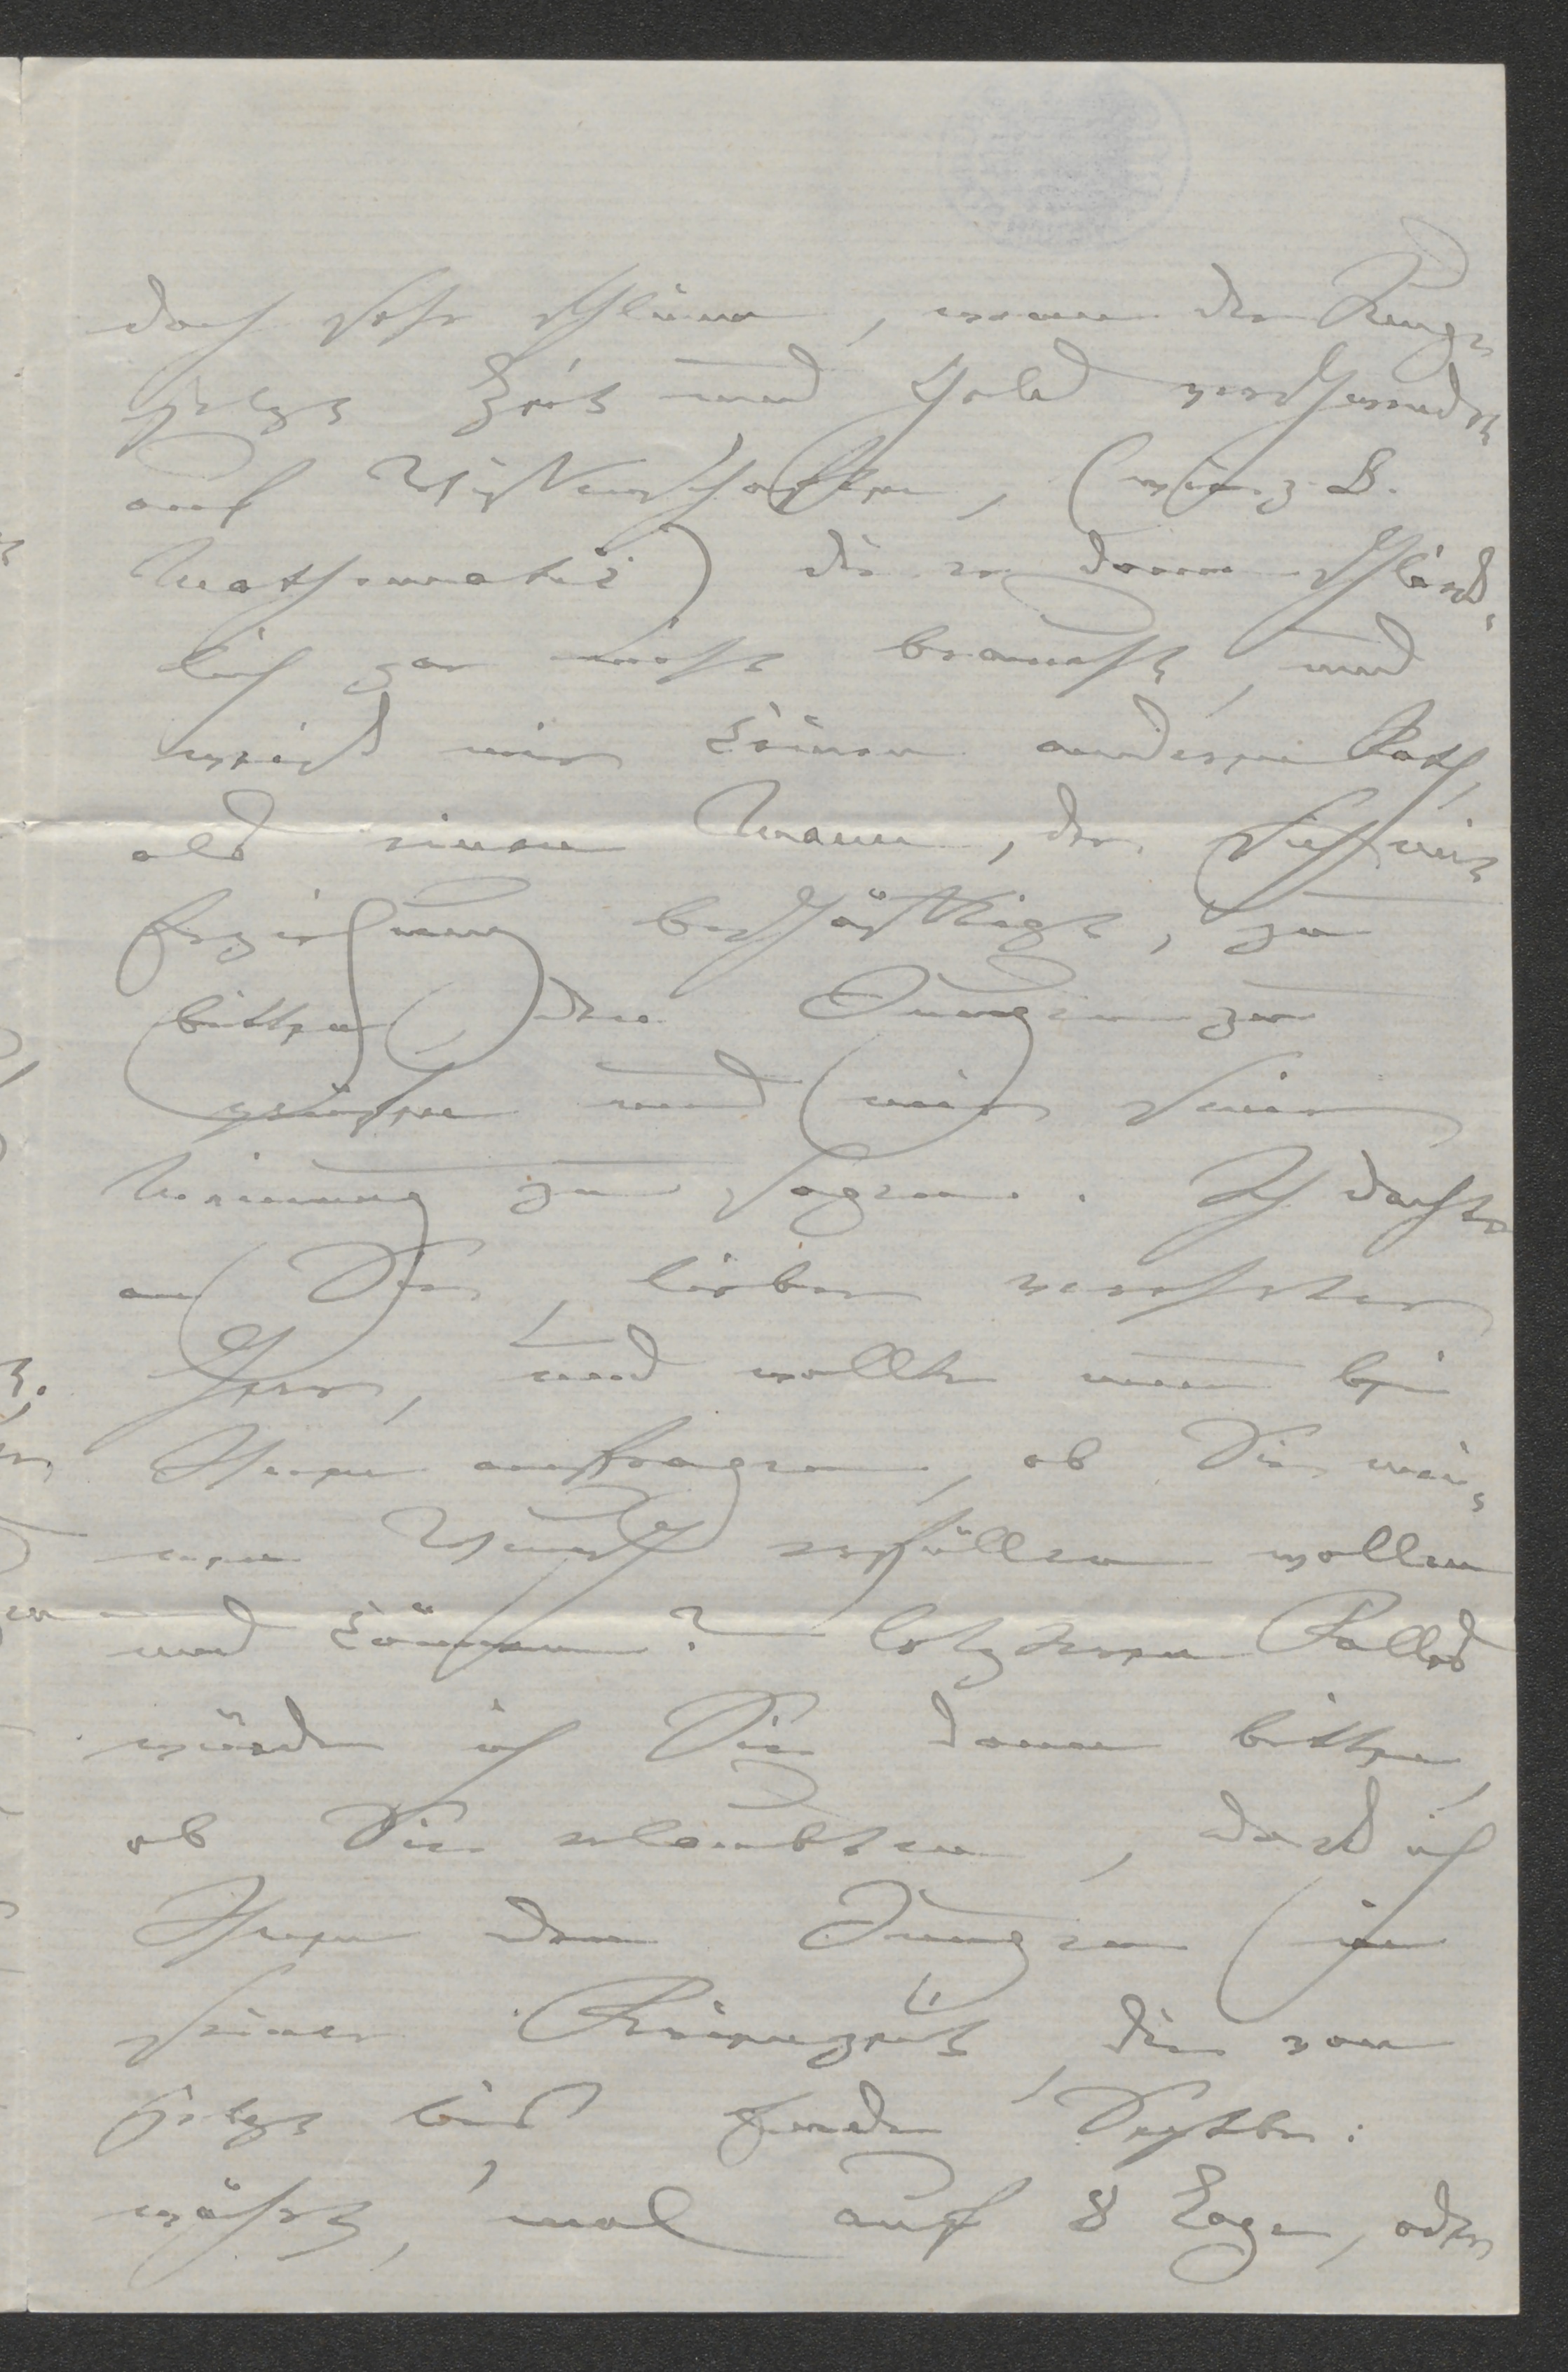 doch sehr schlimm, wenn der Junge
jetzt Zeit und Geld verschwendet
auf Wissenschaften, (wie z. B.
Mathematik) die er dann schließ-
lich gar nicht braucht, und
weiß mir keinen anderen Rath,
als einen Mann, der sich mit
Erziehung beschäftigt, zu
bitten, den Jungen zu
prüfen und mir seine
Meinung zu sagen. Ich dachte
an Sie, lieber verehrter
Herr, und wollte nun bei
Ihnen anfragen, ob Sie mei-
nen Wunsch erfüllen wollen
und können? letzteren Falles
würde ich Sie dann bitten,
ob Sie erlaubten, daß ich
Ihnen den Jungen in
seiner Ferienzeit, die von
jetzt bis Ende Septbr:
währt, mal auf 8 Tage, oder